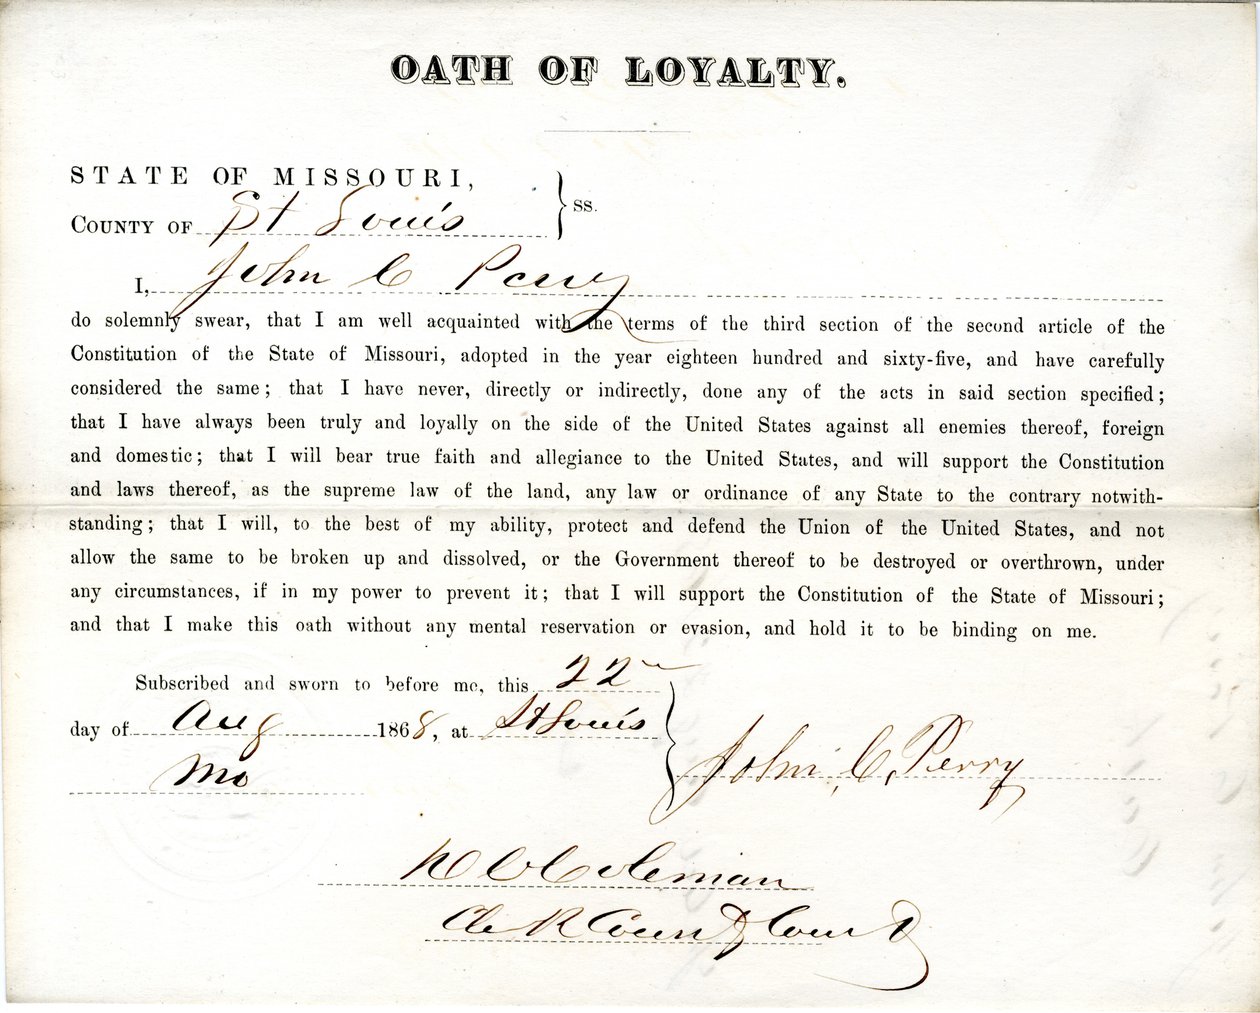 OATH OF LOYALTY.
STATE OF MISSOURI,
COUNTY OF St Louis } ss.
I, John C Perry
do solemnly swear, that I am well acquainted with the terms of the third section of the second article of the
Constitution of the State of Missouri, adopted in the year eighteen hundred and sixty-five, and have carefully
considered the same; that I have never, directly or indirectly, done any of the acts in said section specified;
that I have always been truly and loyally on the side of the United States against all enemies thereof, foreign
and domestic; that I will bear true faith and allegiance to the United States, and will support the Constitution
and laws thereof, as the supreme law of the land, any law or ordinance of any State to the contrary notwith-
standing; that I will, to the best of my ability, protect and defend the Union of the United States, and not
allow the same to be broken up and dissolved, or the Government thereof to be destroyed or overthrown, under
any circumstances, if in my power to prevent it; that I will support the Constitution of the State of Missouri;
and that I make this oath without any mental reservation or evasion, and hold it to be binding on me.
Subscribed and sworn to before me, this 22
day of Aug 1868, at St Louis
Mo
John C, Perry
Coleman
Clerk County Court